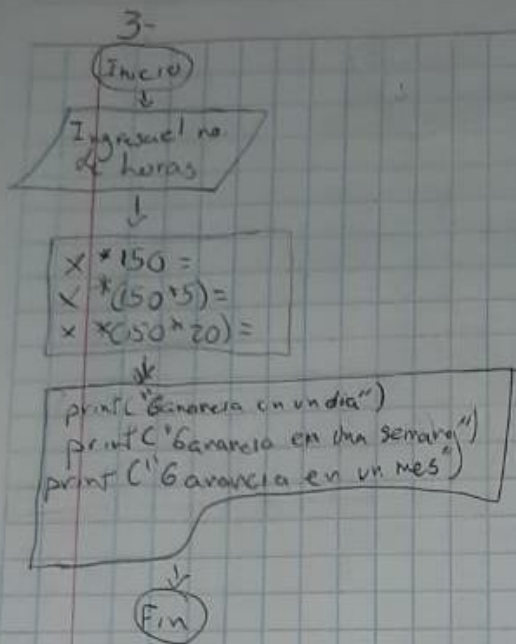 3-
Inicio
Ingresa el no.
de horas
x *150 =
x *(150*5)=
x *(150*20)=
print("Ganancia en un dia")
print("Ganancia en una semana")
print("Ganancia en un mes")
Fin